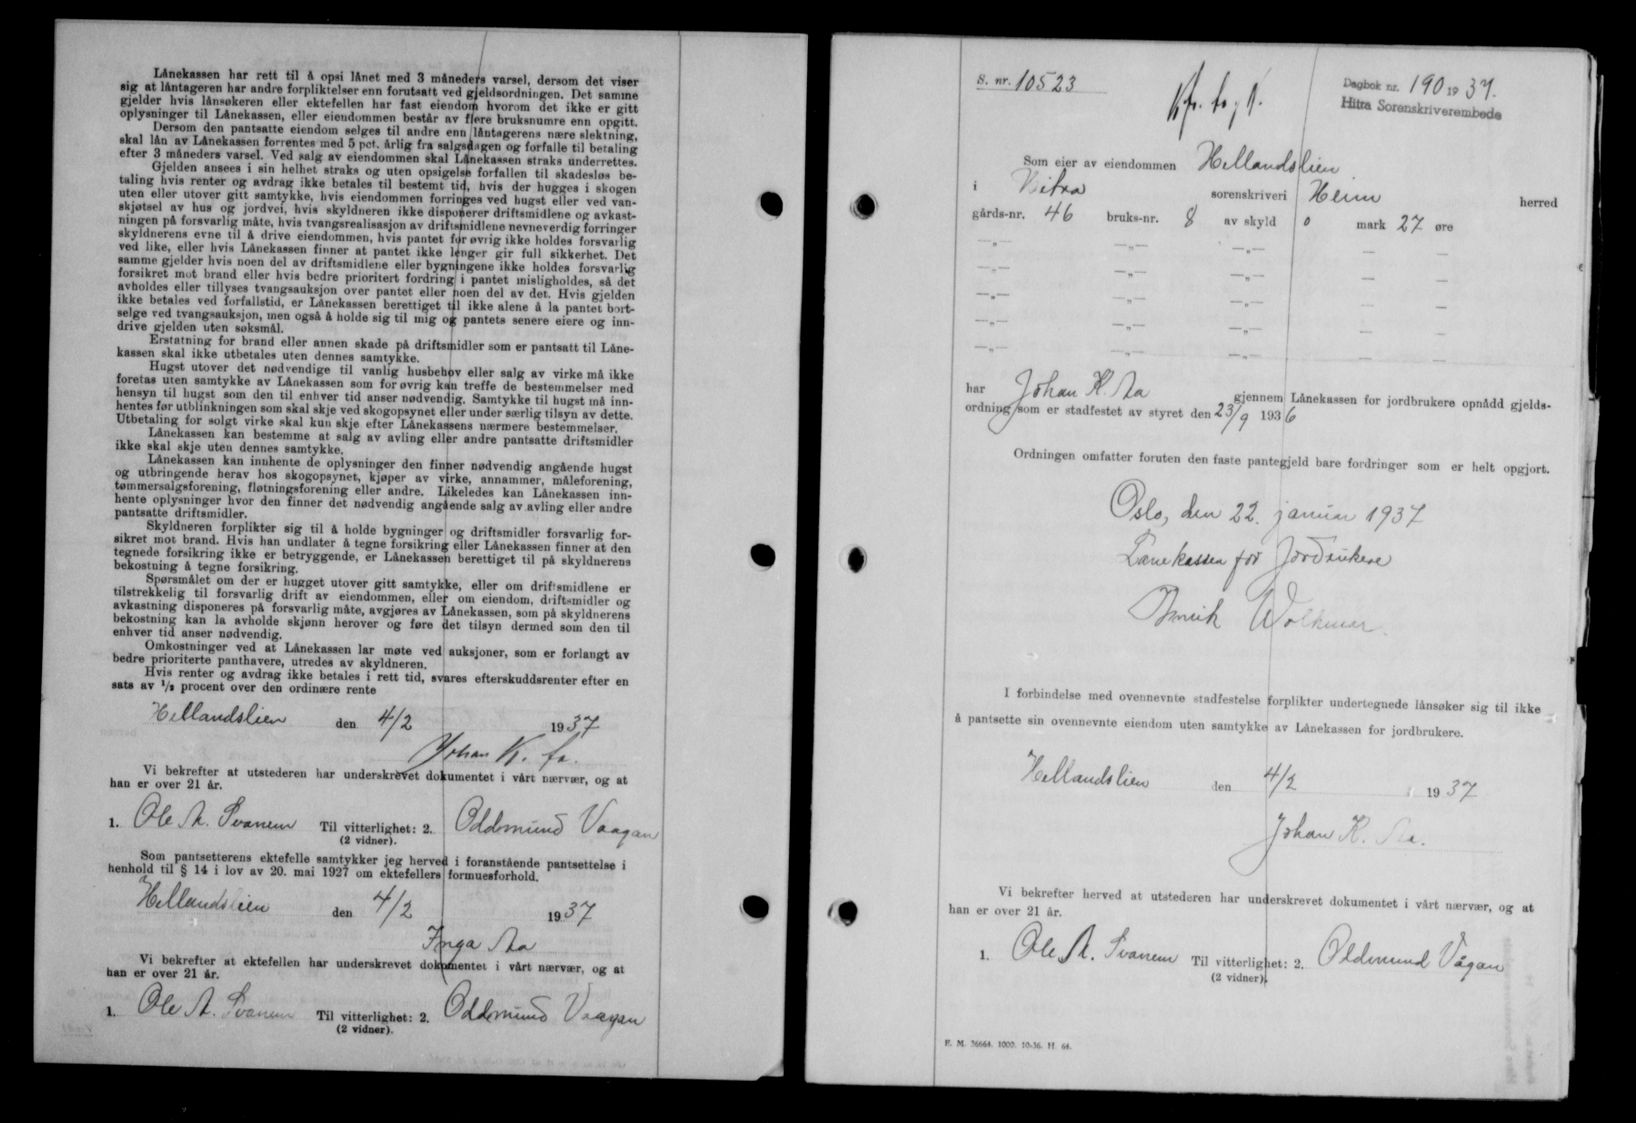 Lånekassen har rett til å opsi lånet med 3 måneders varsel, dersom det viser
sig at låntageren har andre forpliktelser enn forutsatt ved gjeldsordningen. Det samme
gjelder hvis lånsøkeren eller ektefellen har fast eiendom hvorom det ikke er gitt
oplysninger til Lånekassen, eller eiendommen består av flere bruksnumre enn opgitt.
Dersom den pantsatte eiendom selges til andre enn låntagerens nære slektning,
skal lån av Lånekassen forrentes med 5 pct. årlig fra salgsdagen og forfalle til betaling
efter 3 måneders varsel. Ved salg av eiendommen skal Lånekassen straks underrettes.
Gjelden ansees i sin helhet straks og uten opsigelse forfallen til skadesløs be-
taling hvis renter og avdrag ikke betales til bestemt tid, hvis der hugges i skogen
uten eller utover gitt samtykke, hvis eiendommen forringes ved hugst eller ved van-
skjøtsel av hus og jordvei, hvis skyldneren ikke disponerer driftsmidlene og avkast-
ningen på forsvarlig måte, hvis tvangsrealisasjon av driftsmidlene nevneverdig forringer
skyldnerens evne til å drive eiendommen, hvis pantet før øvrig ikke holdes forsvarlig
ved like, eller hvis Lånekassen finner at pantet ikke lenger gir full sikkerhet. Det
samme gjelder hvis noen del av driftsmidlene eller bygningene ikke holdes forsvarlig
forsikret mot brand eller hvis bedre prioritert fordring i pantet misligholdes, så det
avholdes eller tillyses tvangsauksjon over pantet eller noen del av det. Hvis gjelden
ikke betales ved forfallstid, er Lånekassen berettiget til ikke alene å la pantet bort-
selge ved tvangsauksjon, men også å holde sig til mig og pantets senere eiere og inn-
drive gjelden uten søksmål.
Erstatning for brand eller annen skade på driftsmidler som er pantsatt til Låne-
kassen skal ikke utbetales uten dennes samtykke.
Hugst utover det nødvendige til vanlig husbehov eller salg av virke må ikke
foretas uten samtykke av Lånekassen som for øvrig kan treffe de bestemmelser med
hensyn til hugst som den til enhver tid anser nødvendig. Samtykke til hugst må inn-
hentes før utblinkningen som skal skje ved skogopsynet eller under særlig tilsyn av dette.
Utbetaling for solgt virke skal kun skje efter Lånekassens nærmere bestemmelser.
Lånekassen kan bestemme at salg av avling eller andre pantsatte driftsmidler
ikke skal skje uten dennes samtykke.
Lånekassen kan innhente de oplysninger den finner nødvendig angående hugst
og utbringende herav hos skogopsynet, kjøper av virke, annammer, måleforening,
tømmersalgsforening, fløtningsforening eller andre. Likeledes kan Lånekassen inn-
hente oplysninger hvor den finner det nødvendig angående salg av avling eller andre
pantsatte driftsmidler.
Skyldneren forplikter sig til å holde bygninger og driftsmidler forsvarlig for-
sikret mot brand. Hvis han undlater å tegne forsikring eller Lånekassen finner at den
tegnede forsikring ikke er betryggende, er Lånekassen berettiget til på skyldnerens
bekostning å tegne forsikring.
Spørsmålet om der er hugget utover gitt samtykke, eller om driftsmidlene er
tilstrekkelig til forsvarlig drift av eiendommen, eller om eiendom, driftsmidler og
avkastning disponeres på forsvarlig måte, avgjøres av Lånekassen, som på skyldnerens
bekostning kan la avholde skjønn herover og føre det tilsyn dermed som den til
enhver tid anser nødvendig.
Omkostninger ved at Lånekassen lar møte ved auksjoner, som er forlangt av
bedre prioriterte panthavere, utredes av skyldneren.
Hvis renter og avdrag ikke betales i rett tid, svares efterskuddsrenter efter en
sats av ½ procent over den ordinære rente
Hellandslien den 4/2 1937
Johan K. Aa.
Vi bekrefter at utstederen har underskrevet dokumentet i vårt nærvær, og at
han er over 21 år.
1. Ole A. Svanem Til vitterlighet: 2. Oddmund Vaagan
(2 vidner).
Som pantsetterens ektefelle samtykker jeg herved i foranstående pantsettelse i
henhold til § 14 i lov av 20. mai 1927 om ektefellers formuesforhold.
Hellandslien den 4/2 1937
Inga Aa
Vi bekrefter at ektefellen har underskrevet dokumentet i vårt nærvær, og at
han er over 21 år.
1. Ole A. Svanem Til vitterlighet: 2. Oddmund Vaagan
(2 vidner).
S. nr. 10523
Dagbok nr. 190 1937.
Hitra Sorenskriverembede
Som eier av eiendommen Hellandslien
i Hitra sorenskriveri Heim herred
gårds-nr. 46 bruks-nr. 8 av skyld 0 mark 27 øre
—„— —„— —„— — —
—„— —„— —„— — —
—„— —„— —„— — —
—„— —„— —„— — —
—„— —„— —„— — —
har Johan K. Aa gjennem Lånekassen for jordbrukere opnådd gjelds-
ordning som er stadfestet av styret den 23/9 1936
Ordningen omfatter foruten den faste pantegjeld bare fordringer som er helt opgjort.
Oslo, den 22. januar 1937
Lånekassen for Jordbrukere
I forbindelse med ovennevnte stadfestelse forplikter undertegnede lånsøker sig til ikke
å pantsette sin ovennevnte eiendom uten samtykke av Lånekassen for jordbrukere.
Hellandslien den 4/2 1937
Johan K. Aa.
Vi bekrefter herved at utstederen har underskrevet dokumentet i vårt nærvær, og at
han er over 21 år.
1. Ole A. Svanem Til vitterlighet: 2. Oddmund Vågan
(2 vidner).
E. M. 36664. 1000. 10-36. H. 64.